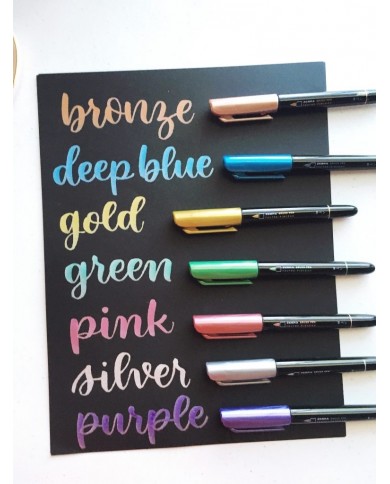 bronze
deep blue
gold
green
pink
silver
purple